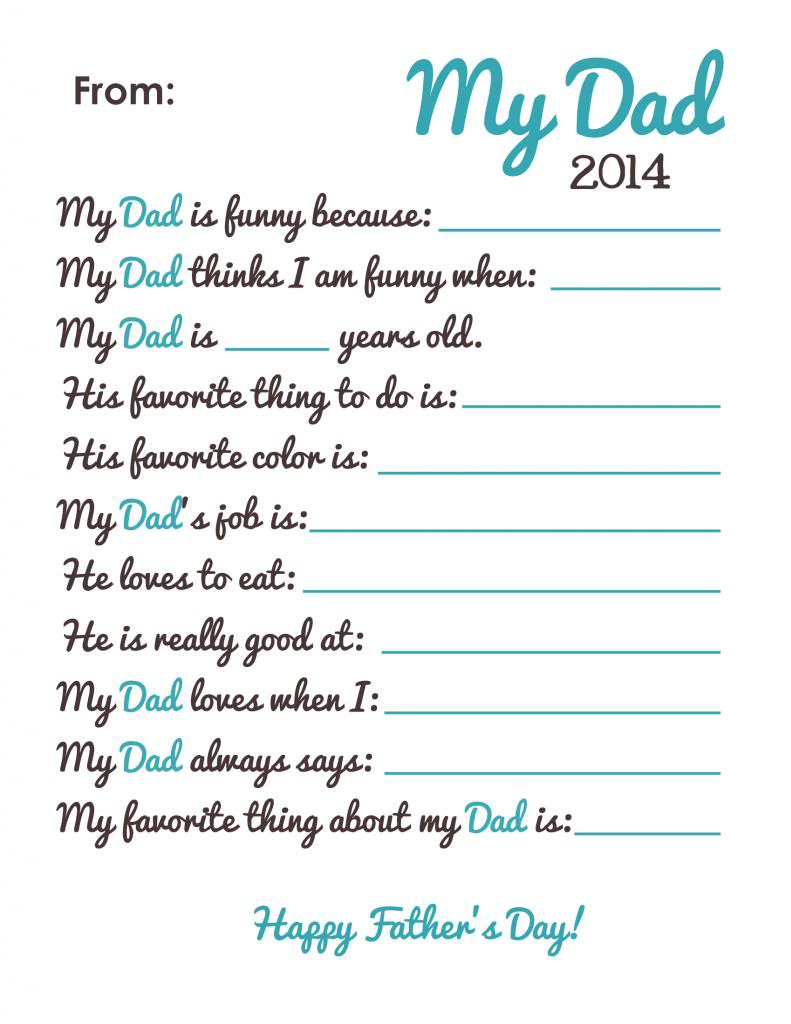 From:
My Dad
2014
My Dad is funny because:
My Dad thinks I am funny when:
My Dad is ______ years old.
His favorite thing to do is:
His favorite color is:
My Dad's job is:
He loves to eat:
He is really good at:
My Dad loves when I:
My Dad always says:
My favorite thing about my Dad is:
Happy Father's Day!